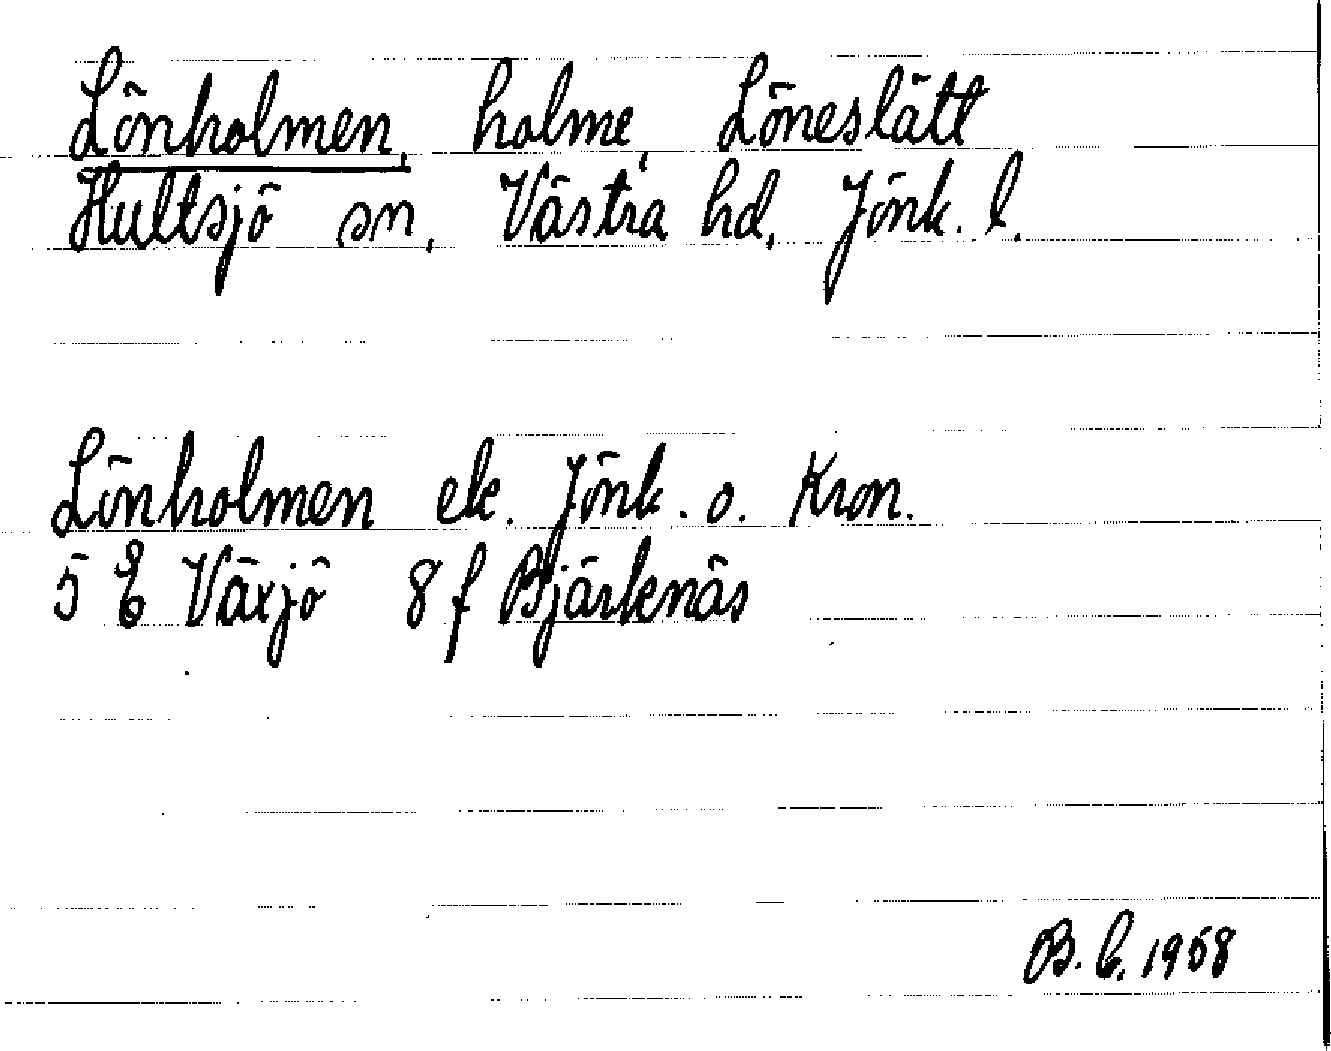 Lönholmen, holme, Löneslätt
Hultsjö sn, Västra hd, Jönk. l.
Lönholmen ek. Jönk. o. Kron.
5 E Växjö 8 f Bjärkenäs
B. C. 1958